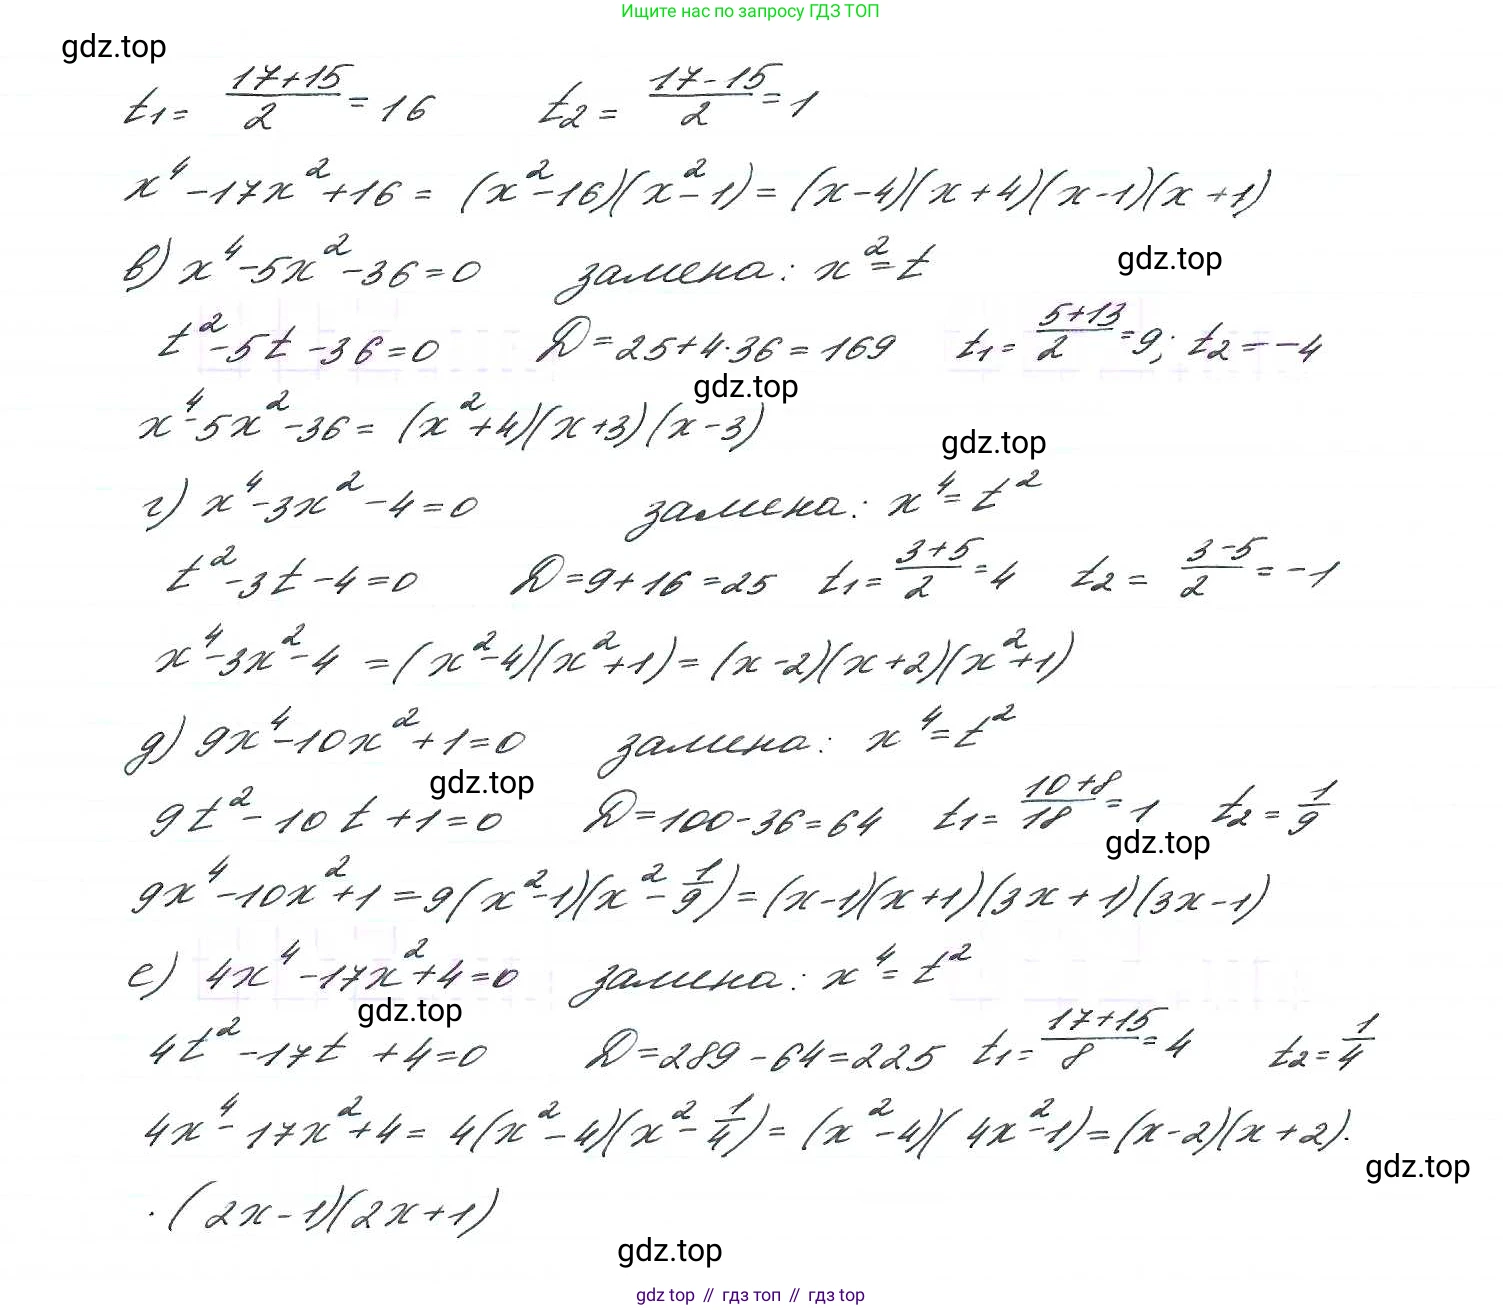 Ищите нас по запросу ГДЗ ТОП
gdz.top
t₁ = (17+15)/2 = 16   t₂ = (17-15)/2 = 1
x⁴ - 17x² + 16 = (x² - 16)(x² - 1) = (x-4)(x+4)(x-1)(x+1)
в) x⁴ - 5x² - 36 = 0   замена: x² = t
gdz.top
t² - 5t - 36 = 0   D = 25 + 4·36 = 169   t₁ = (5+13)/2 = 9; t₂ = -4
gdz.top
x⁴ - 5x² - 36 = (x² + 4)(x+3)(x-3)
gdz.top
г) x⁴ - 3x² - 4 = 0   замена: x⁴ = t²
t² - 3t - 4 = 0   D = 9 + 16 = 25   t₁ = (3+5)/2 = 4   t₂ = (3-5)/2 = -1
x⁴ - 3x² - 4 = (x² - 4)(x² + 1) = (x-2)(x+2)(x² + 1)
д) 9x⁴ - 10x² + 1 = 0   замена: x⁴ = t²
gdz.top
9t² - 10t + 1 = 0   D = 100 - 36 = 64   t₁ = (10+8)/18 = 1   t₂ = 1/9
gdz.top
9x⁴ - 10x² + 1 = 9(x² - 1)(x² - 1/9) = (x-1)(x+1)(3x+1)(3x-1)
е) 4x⁴ - 17x² + 4 = 0   замена: x⁴ = t²
gdz.top
4t² - 17t + 4 = 0   D = 289 - 64 = 225   t₁ = (17+15)/8 = 4   t₂ = 1/4
4x⁴ - 17x² + 4 = 4(x² - 4)(x² - 1/4) = (x² - 4)(4x² - 1) = (x-2)(x+2)·
gdz.top
·(2x-1)(2x+1)
gdz.top
gdz.top // гдз топ // гдз.top